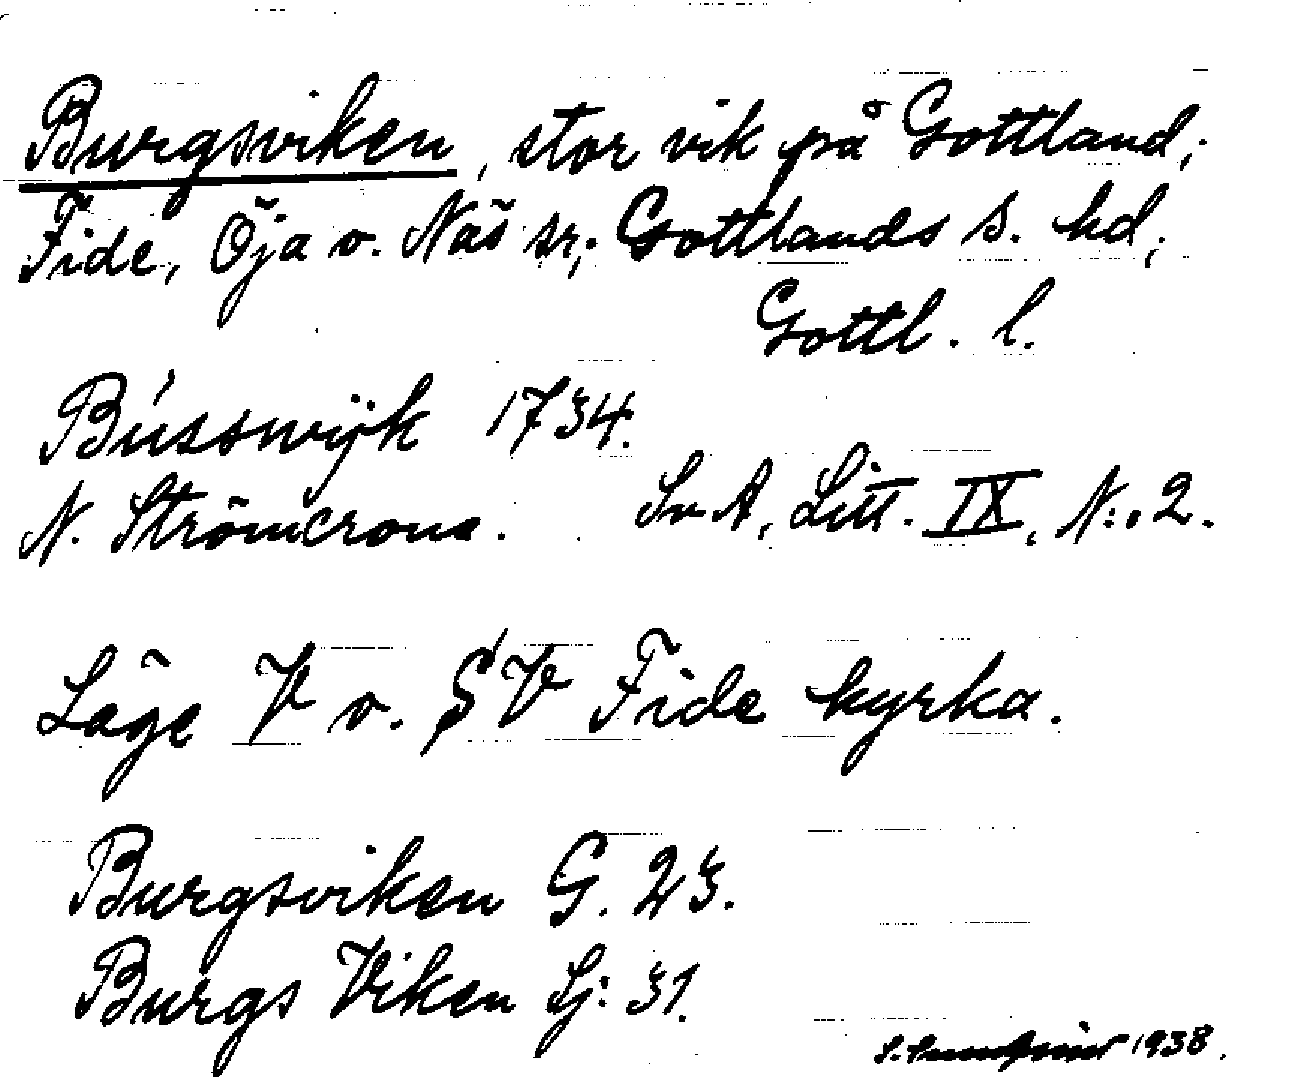 Burgsviken, stor vik på Gottland;
Fide, Öja o. Näs sr; Gottlands s. hd,
Gottl. l.
Bússwÿk 1734.
N. Strömcrona. LvA, Litt. IX, N:o 2.
Läge V o. SV Fide kyrka.
Burgsviken G. 23.
Burgs Viken Sj: 31.
1938.